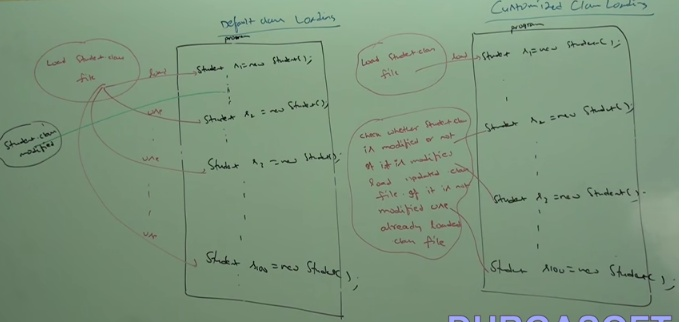 Default class Loading
program
Load Student.class
file
load
Student s1=new Student();
use
Student s2=new Student();
Student.class
modified
use
Student s3=new Student();
use
Student s100=new Student();
Customized Class Loading
program
Load Student.class
file
load
Student s1=new Student();
Student s2=new Student();
check whether Student.class
is modified or not
if it is modified
load updated class
file. if it is not
modified use
already loaded
class file
Student s3=new Student();
Student s100=new Student();
DURGASOFT